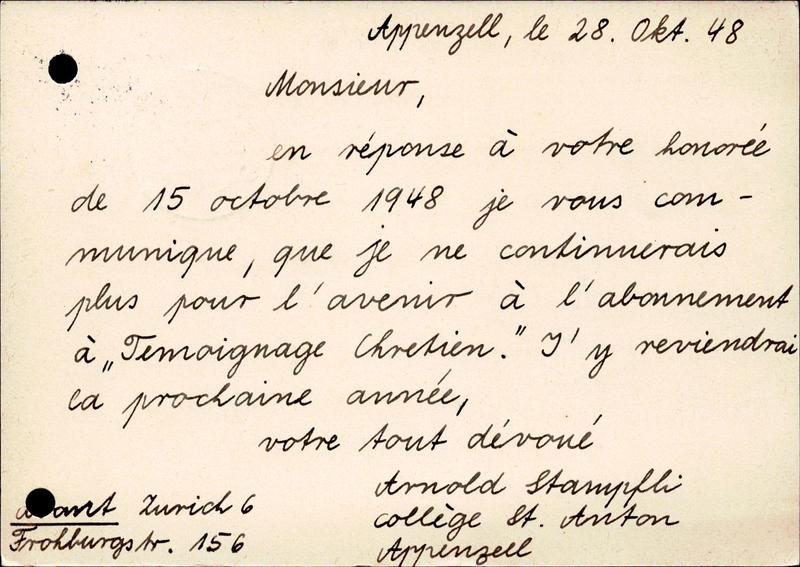 Appenzell, le 28. Okt. 48
Monsieur,
en réponse à votre honorée
de 15 octobre 1948 je vous com-
munique, que je ne continuerais
plus pour l'avenir à l'abonnement
à „Temoignage Chretien." J'y reviendrai
la prochaine année,
votre tout dévoué
Arnold Stampfli
collège St. Anton
Appenzell
avant Zurich 6
Frohburgstr. 156